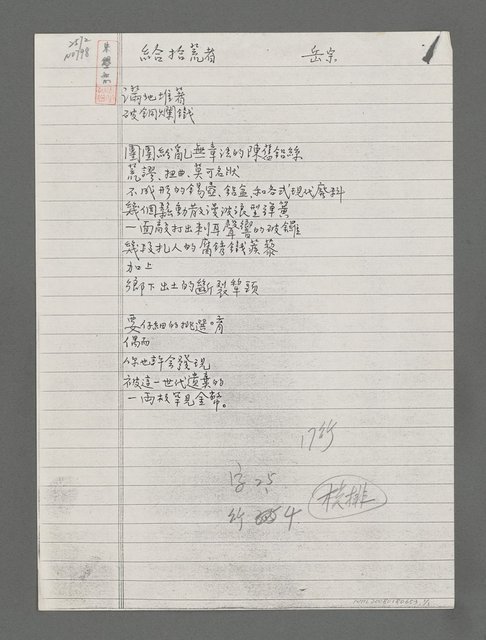 25/2
No/98
給拾荒者 岳宗
滿地堆著
破銅爛鐵
團團紛亂無章法的陳舊鋁絲
荒謬、扭曲、莫可名狀
不成形的錫壺、鋁盒和各式現代廢料
幾個鬆動散漫波浪型彈簧
一面敲打出刺耳聲響的破鑼
幾枚扎人的腐銹鐵蒺藜
加上
鄉下出土的斷裂犂頭
要仔細的挑選。有
偶而
你也許會發現
被這一世代遺棄的
一兩枚罕見金幣。
17行
字25
行 4
核排